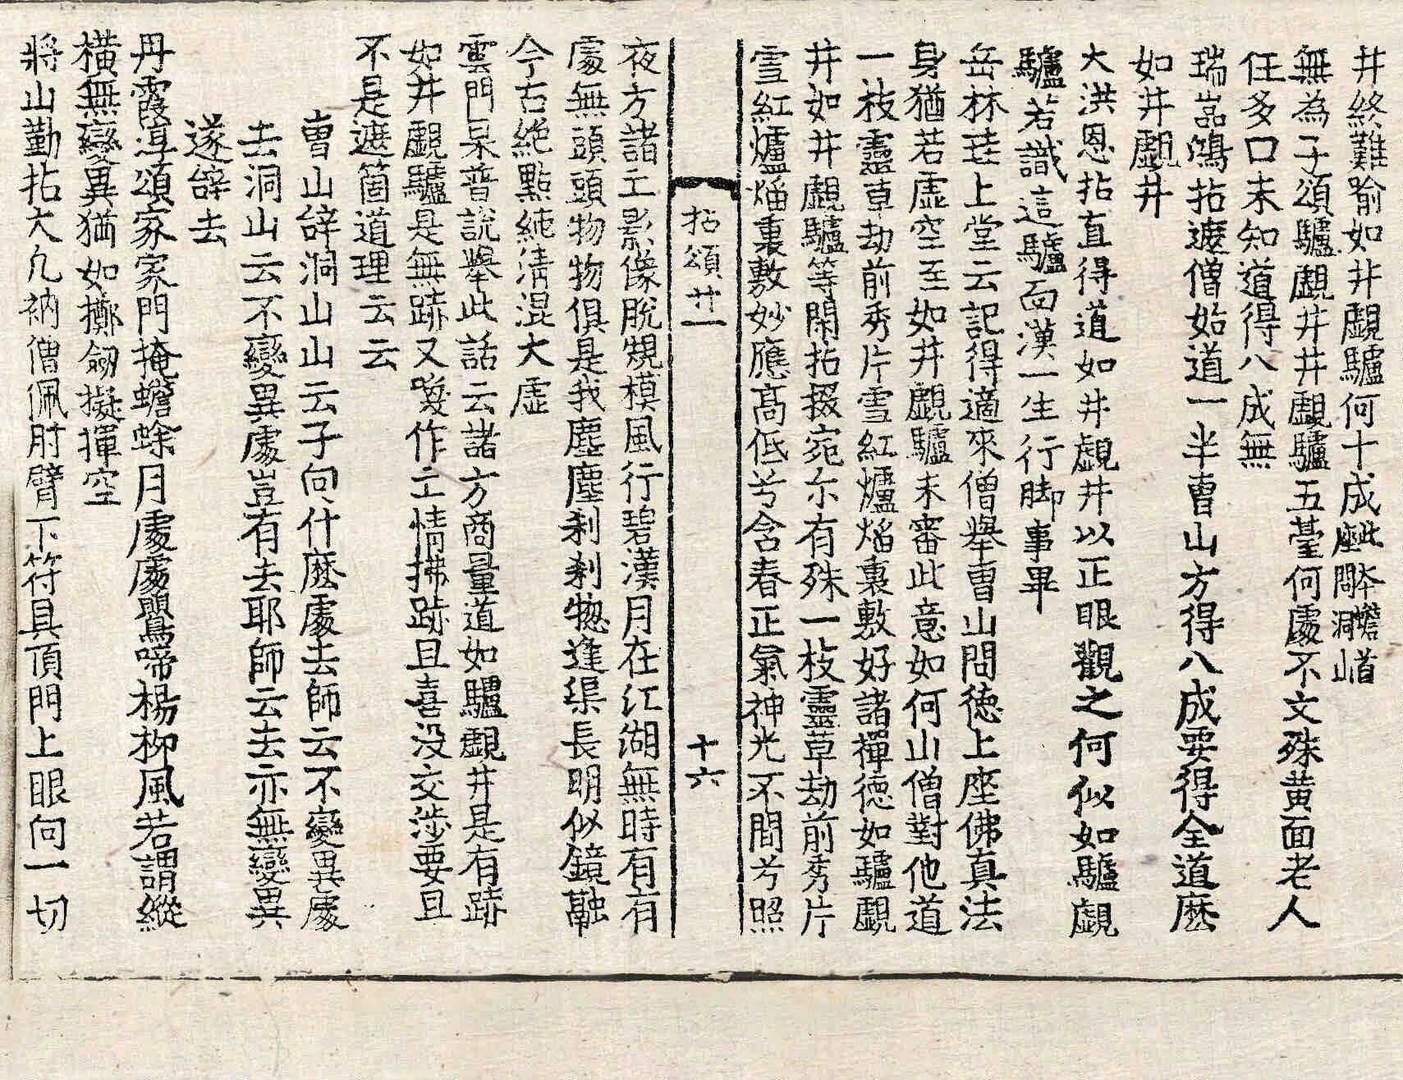 井終難喻如井覷驢何十成此本蟾
座問洞山首
無為子頌驢覷井井覷驢五臺何處不文殊黄面老人
任多口未知道得八成無
瑞嵓鴻拈遮僧始道一半曺山方得八成要得全道麽
如井覷井
大洪恩拈直得道如井覷井以正眼觀之何似如驢覷
驢若識這驢面漢一生行脚事畢
岳林珪上堂云記得適來僧舉曺山問徳上座佛真法
身猶若虛空至如井覷驢未審此意如何山僧對他道
一枝靈草劫前秀片雪紅爐焰裏敷好諸禪徳如驢覷
井如井覷驢等閑拈掇宛尓有殊一枝靈草劫前秀片
雪紅爐焰裏敷妙應髙低兮含春正氣神光不間兮照
拈頌廿一
十六
夜方諸工影像脫䂓模風行碧漢月在江湖無時有有
處無頭頭物物俱是我塵塵刹刹惣逢渠長明似鏡融
今古絶點純淸混大虛
雲門杲普說舉此話云諸方商量道如驢覷井是有跡
如井覷驢是無跡又喚作工情拂跡且喜没交涉要且
不是遮箇道理云云
曺山辞洞山山云子向什麽處去師云不變異處
去洞山云不變異處豈有去耶師云去亦無變異
遂辝去
丹霞淳頌家家門掩蟾蜍月處處鸎啼楊柳風若謂縱
橫無變異猶如擲劒擬揮空
蔣山勤拈大凡衲僧佩肘臂下符具頂門上眼向一切